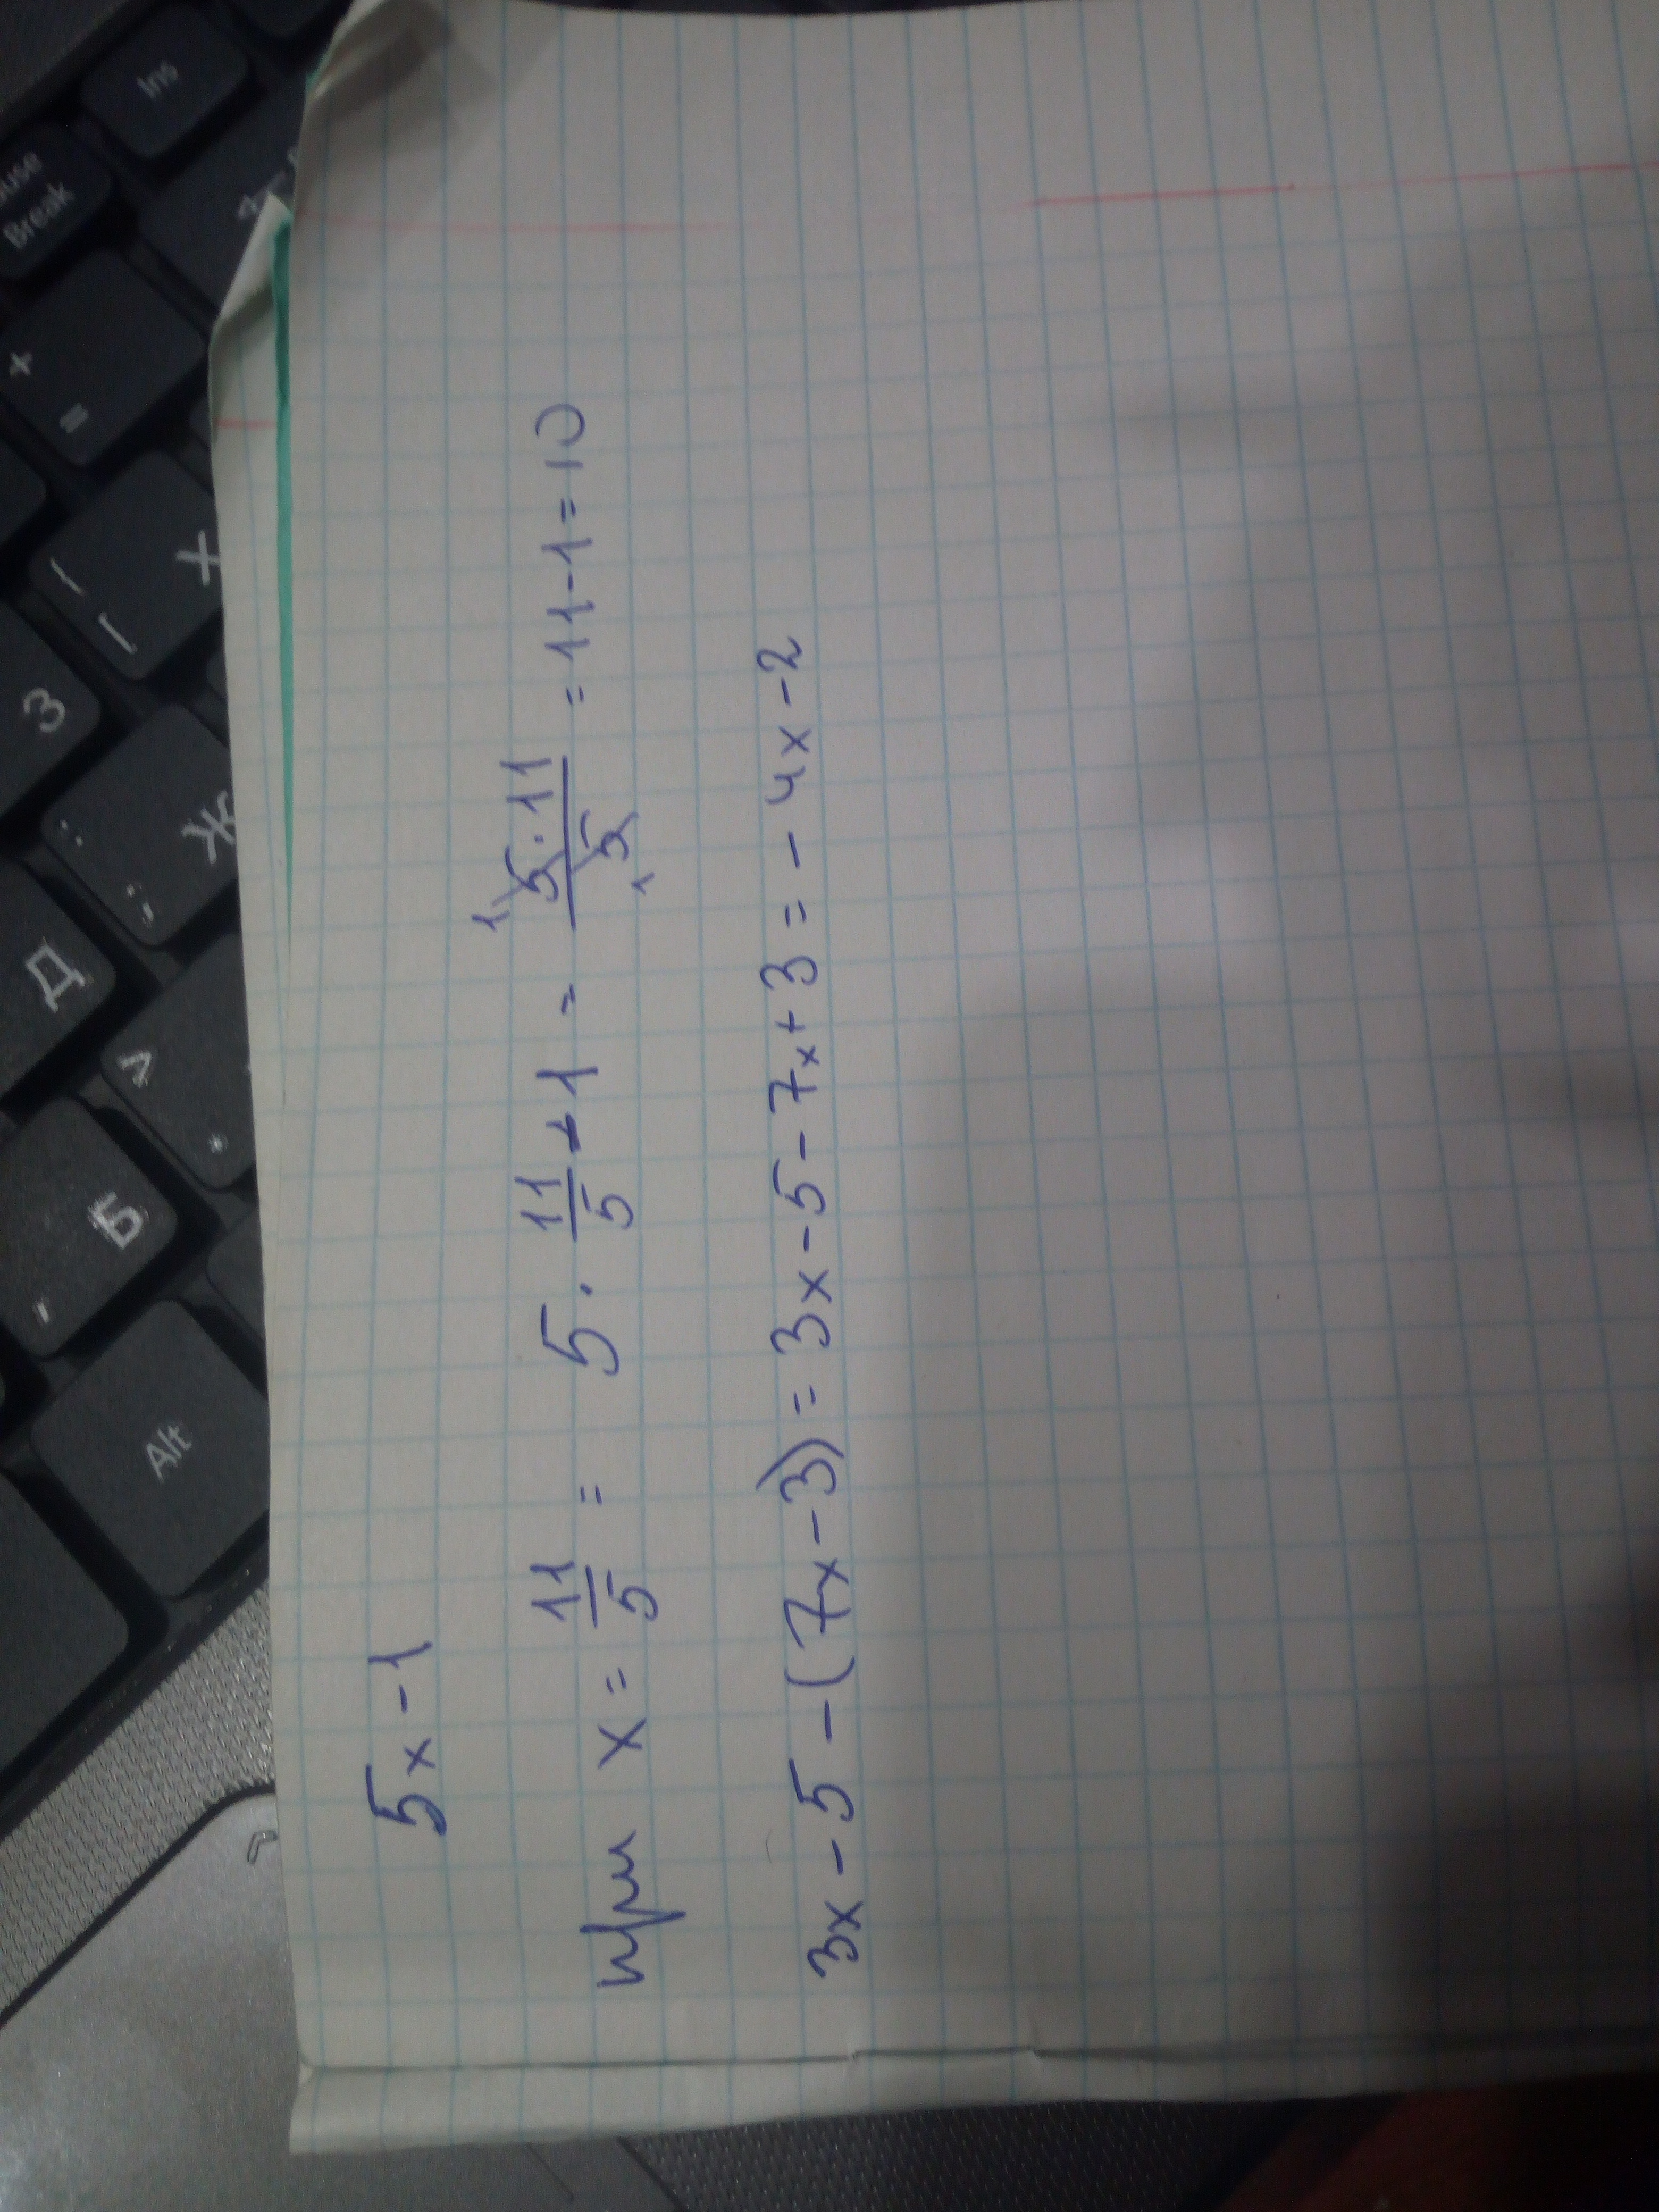 5x - 1
при x = 11/5 = 5 · 11/5 - 1 = 1 5 · 11 / 5 1 = 11 - 1 = 10
3x - 5 - (7x - 3) = 3x - 5 - 7x + 3 = - 4x - 2
Ins
Break
+
=
[
{
Х
З
Ж
;
:
Д
>
Б
,
Alt